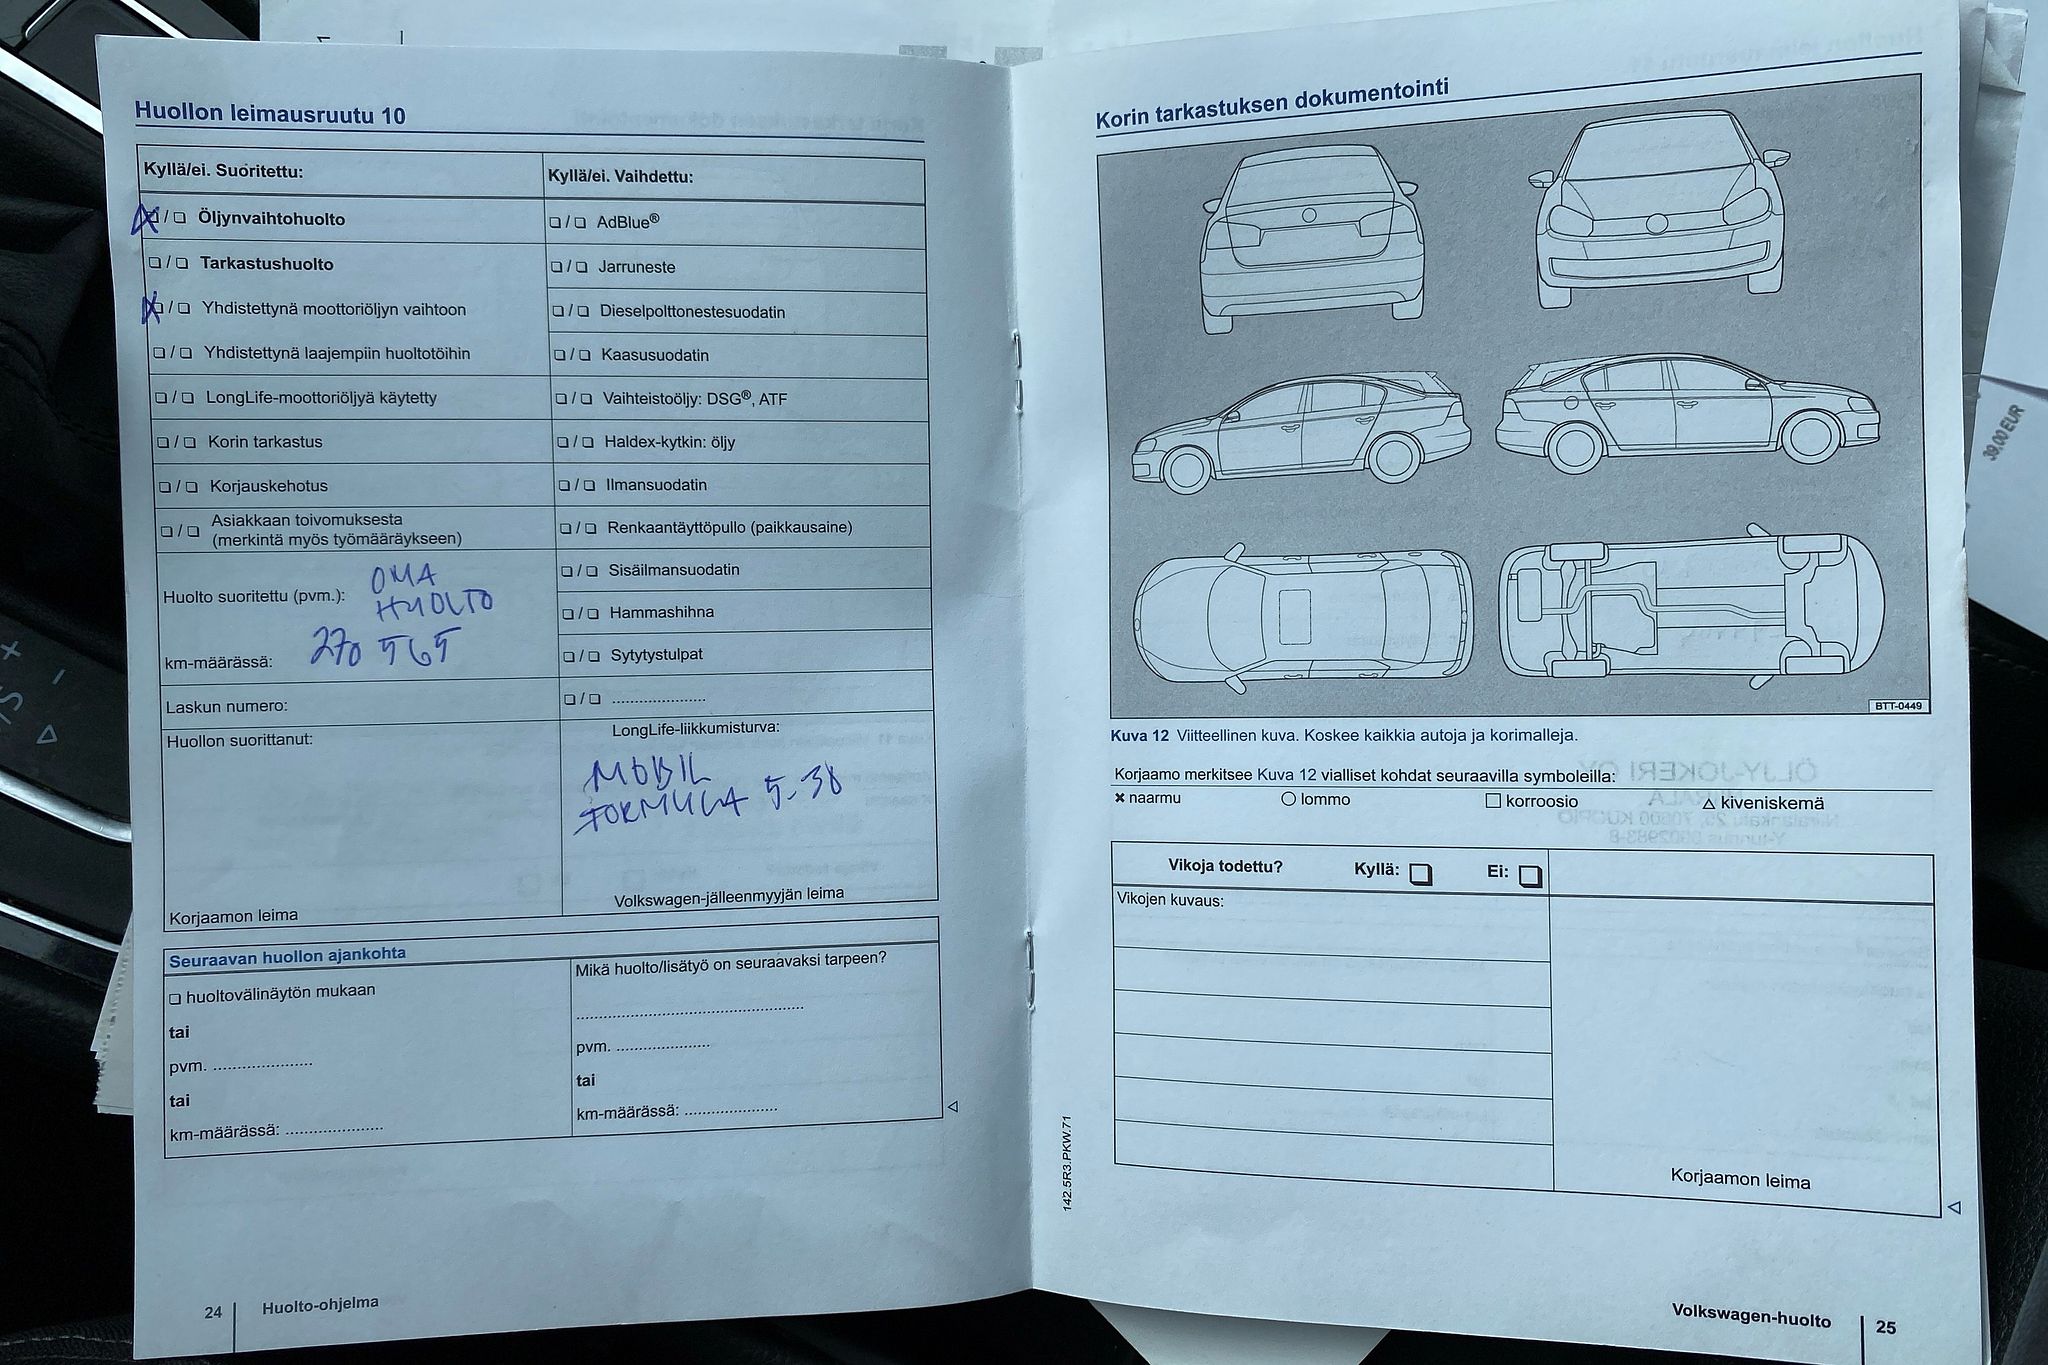 Huollon leimausruutu 10
Kyllä/ei. Suoritettu:
/ Öljynvaihtohuolto
/ Tarkastushuolto
/ Yhdistettynä moottoriöljyn vaihtoon
/ Yhdistettynä laajempiin huoltotöihin
/ LongLife-moottoriöljyä käytetty
/ Korin tarkastus
/ Korjauskehotus
/ Asiakkaan toivomuksesta
(merkintä myös työmääräykseen)
Huolto suoritettu (pvm.): OMA
HUOLTO
km-määrässä: 270 565
Laskun numero:
Huollon suorittanut:
Korjaamon leima
Kyllä/ei. Vaihdettu:
/ AdBlue®
/ Jarruneste
/ Dieselpolttonestesuodatin
/ Kaasusuodatin
/ Vaihteistoöljy: DSG®, ATF
/ Haldex-kytkin: öljy
/ Ilmansuodatin
/ Renkaantäyttöpullo (paikkausaine)
/ Sisäilmansuodatin
/ Hammashihna
/ Sytytystulpat
/ ......................
LongLife-liikkumisturva:
MOBIL
FORMULA 5-30
Volkswagen-jälleenmyyjän leima
Seuraavan huollon ajankohta
huoltovälinäytön mukaan
tai
pvm. ......................
tai
km-määrässä: ......................
Mikä huolto/lisätyö on seuraavaksi tarpeen?
......................................................
pvm. ......................
tai
km-määrässä: ......................
24 Huolto-ohjelma
Korin tarkastuksen dokumentointi
BTT-0449
Kuva 12 Viitteellinen kuva. Koskee kaikkia autoja ja korimalleja.
Korjaamo merkitsee Kuva 12 vialliset kohdat seuraavilla symboleilla:
naarmu lommo korroosio kiveniskemä
Vikoja todettu? Kyllä: Ei:
Vikojen kuvaus:
Korjaamon leima
142.5R3.PKW.71
Volkswagen-huolto 25
39,00 EUR